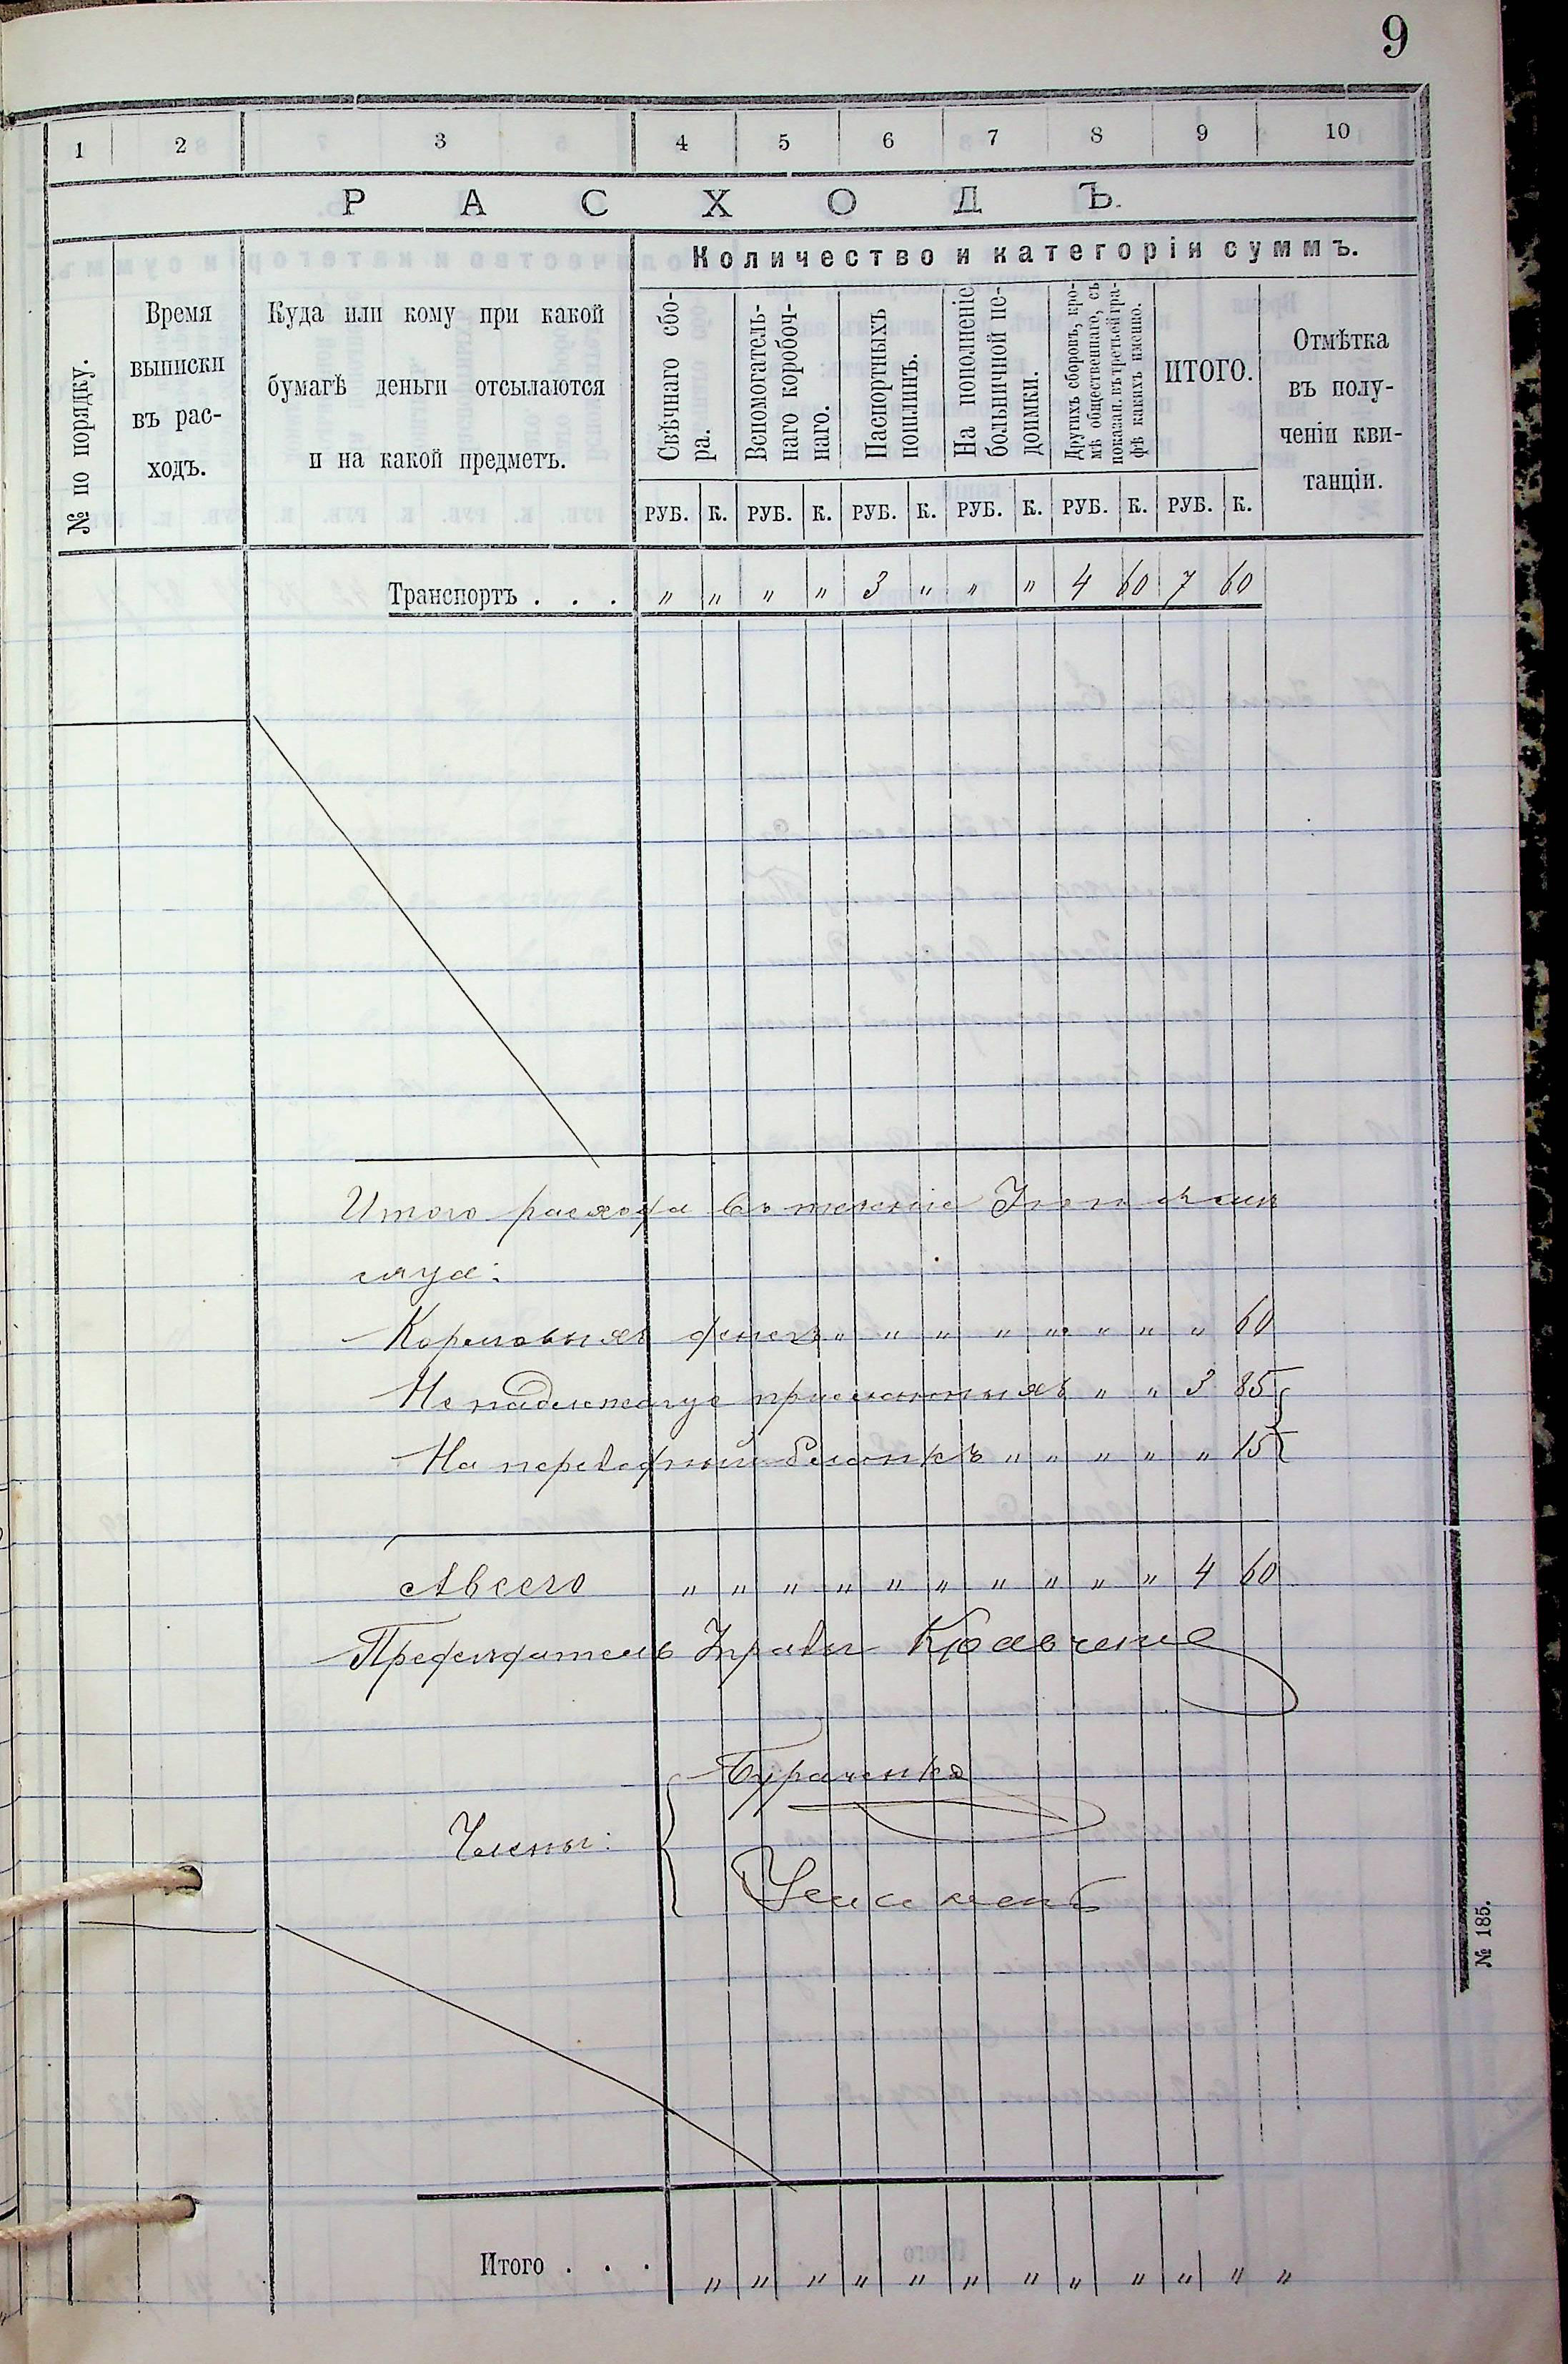 9
1 2 3 4 5 6 7 8 9 10
РАСХОДЪ.
№ по порядку.
Время
выписки
въ рас-
ходъ.
Куда или кому при какой
бумагѣ деньги отсылаются
и на какой предметъ.
Количество и категоріи суммъ.
Свѣчнаго сбо-
ра.
Вспомогатель-
наго коробоч-
наго.
Паспортныхъ
пошлинъ.
На пополненіе
больничной не-
доимки.
Другихъ сборовъ, кро-
мѣ общественнаго, съ
показан. въ третьей гра-
фѣ какихъ именно.
ИТОГО.
Отмѣтка
въ полу-
ченіи кви-
танціи.
РУБ. К. РУБ. К. РУБ. К. РУБ. К. РУБ. К. РУБ. К.
Транспортъ . . . " " " " 3 " " " 4 60 7 60
Итого расхода въ теченіе
сяца:
Кормовыхъ денегъ " " " " " " " " 60
Ненадлежаще " " 3 85
На переводный бланкъ " " " " " 15
А всего " " " " " " " " " " 4 60
Предсѣдатель Управы Кравченко
Члены:
Бураченко
Итого . . . " " " " " " " " " " " "
№ 185.